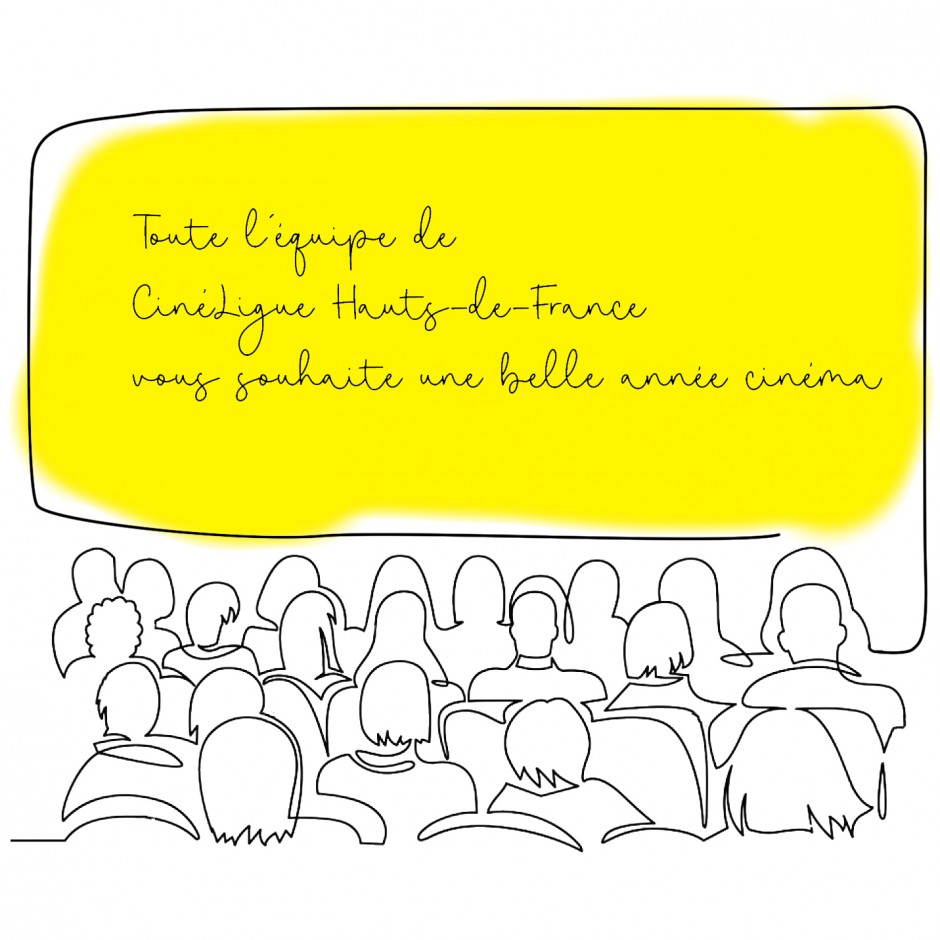 Toute l'équipe de
CinéLigue Hauts-de-France
vous souhaite une belle année cinéma